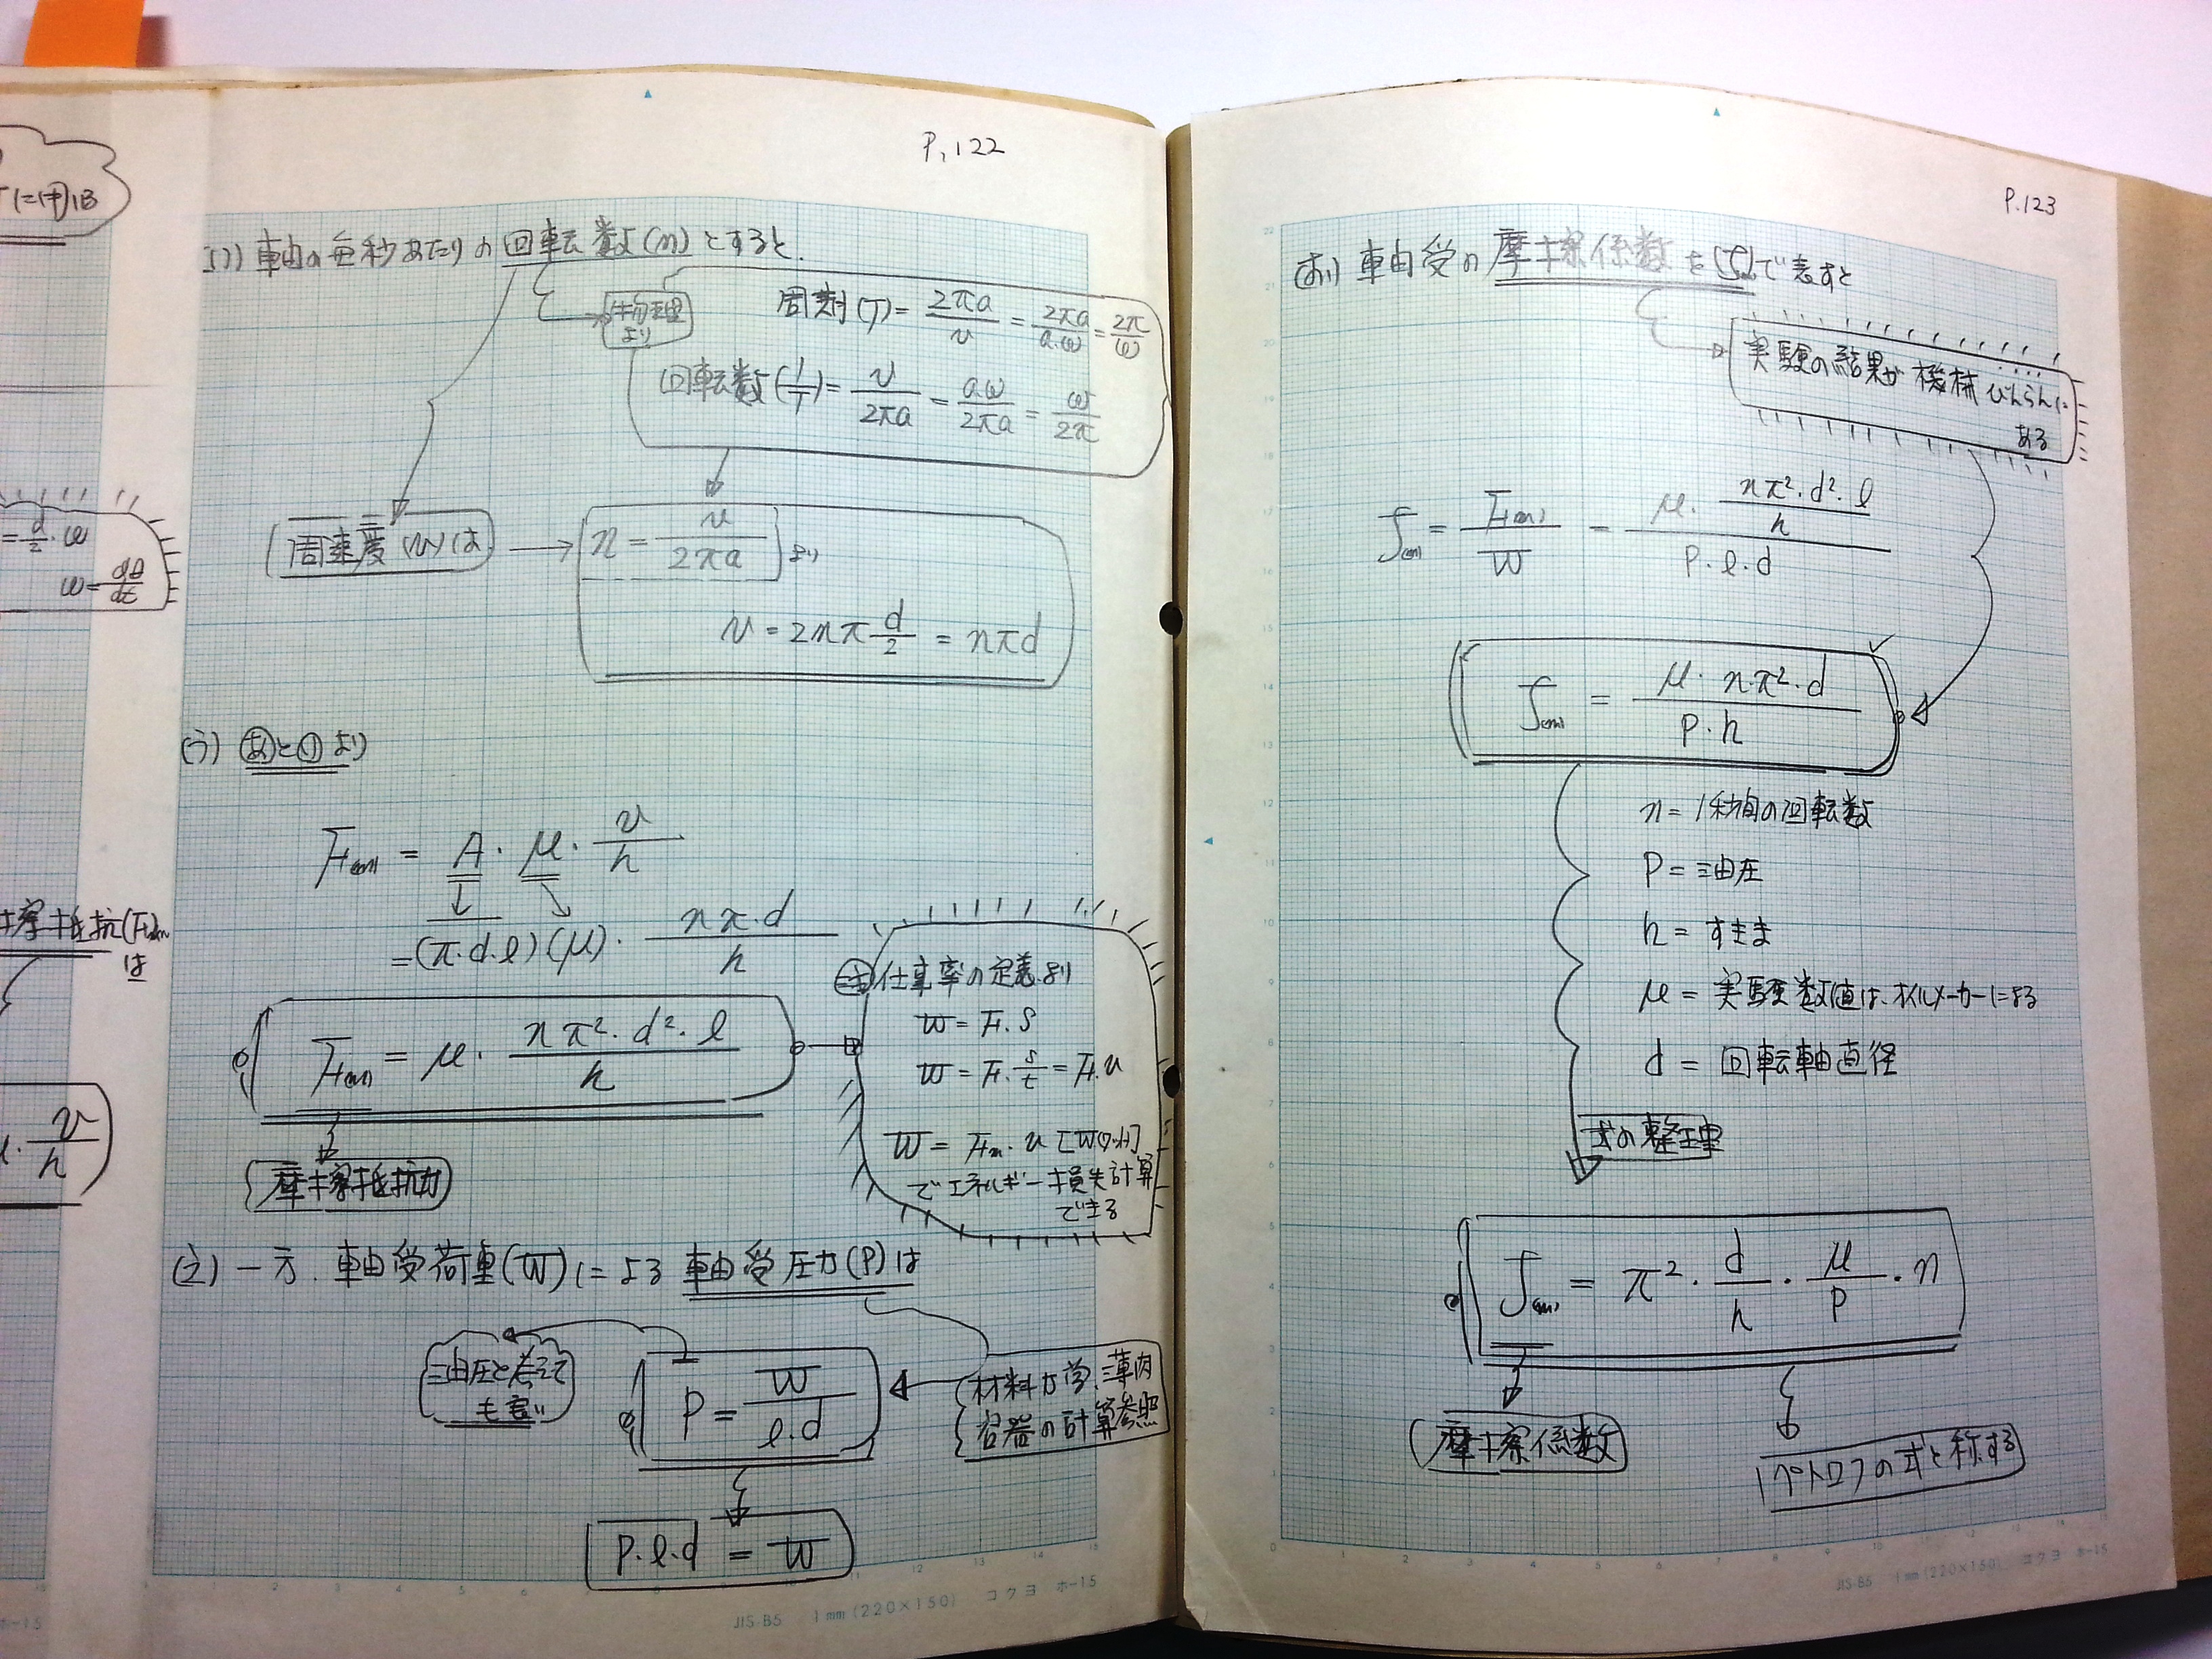 に付记
= d/2 · ω
ω = dθ/dt
擦抵抗(Fm)
は
μ · v/h
P.122
(い) 軸の毎秒あたりの回転数(n)とすると.
物理
より
周期(T) = 2πa/v = 2πa/a.ω = 2π/ω
回転数(1/T) = v/2πa = aω/2πa = ω/2π
周速度(v)は
n = v/2πa より
v = 2nπ d/2 = nπd
(う) あといより
F(m) = A · μ · v/h
= (π.d.l)(μ) · nπ.d/h
F(m) = μ · nπ²·d²·l/h
摩擦抵抗力
仕事率の定義より
W = F.S
W = F. S/t = F.v
W = Fm. v [W(ワット)]
でエネルギー損失計算
できる
(え) 一方. 軸受荷重(W)による軸受圧力(P)は
油圧と考えて
も良い
P = W/l.d
材料力学.薄肉
容器の計算参照
P.l.d = W
JIS-B5 1mm(220×150) コクヨ ホ-15
P.123
(お) 軸受の摩擦係数を(f)で表すと
実験の結果が機械びんらんに
ある
f(m) = F(m)/W = μ · nπ²·d²·l/h / P·l·d
f(m) = μ · n·π²·d / P·h
n = 1秒間の回転数
P = 油圧
h = すきま
μ = 実験数値は、オイルメーカーによる
d = 回転軸直径
式の整理
f(m) = π² · d/h · μ/P · n
摩擦係数
ペトロフの式と称する
JIS-B5 1mm(220×150) コクヨ ホ-15